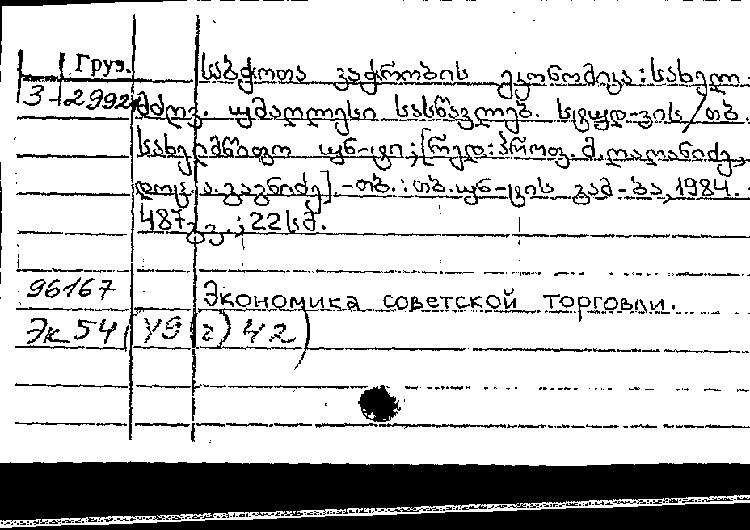 Груз. საბჭოთა ვაჭრობის ეკონომიკა : სახელ-
3-2992 მძღვ. უმაღლესი სასწავლებ. სტუდ-ვის / თბ.
სახელმწიფო უნ-ტი ; [რედ.: პროფ. მ. ლალანიძე,
დოც. ა. გაგნიძე]. - თბ. : თბ. უნ-ტის გამ-ბა, 1984. -
487 გვ. ; 22 სმ.
96167 Экономика советской торговли.
Эк 54 (У9(2)42)